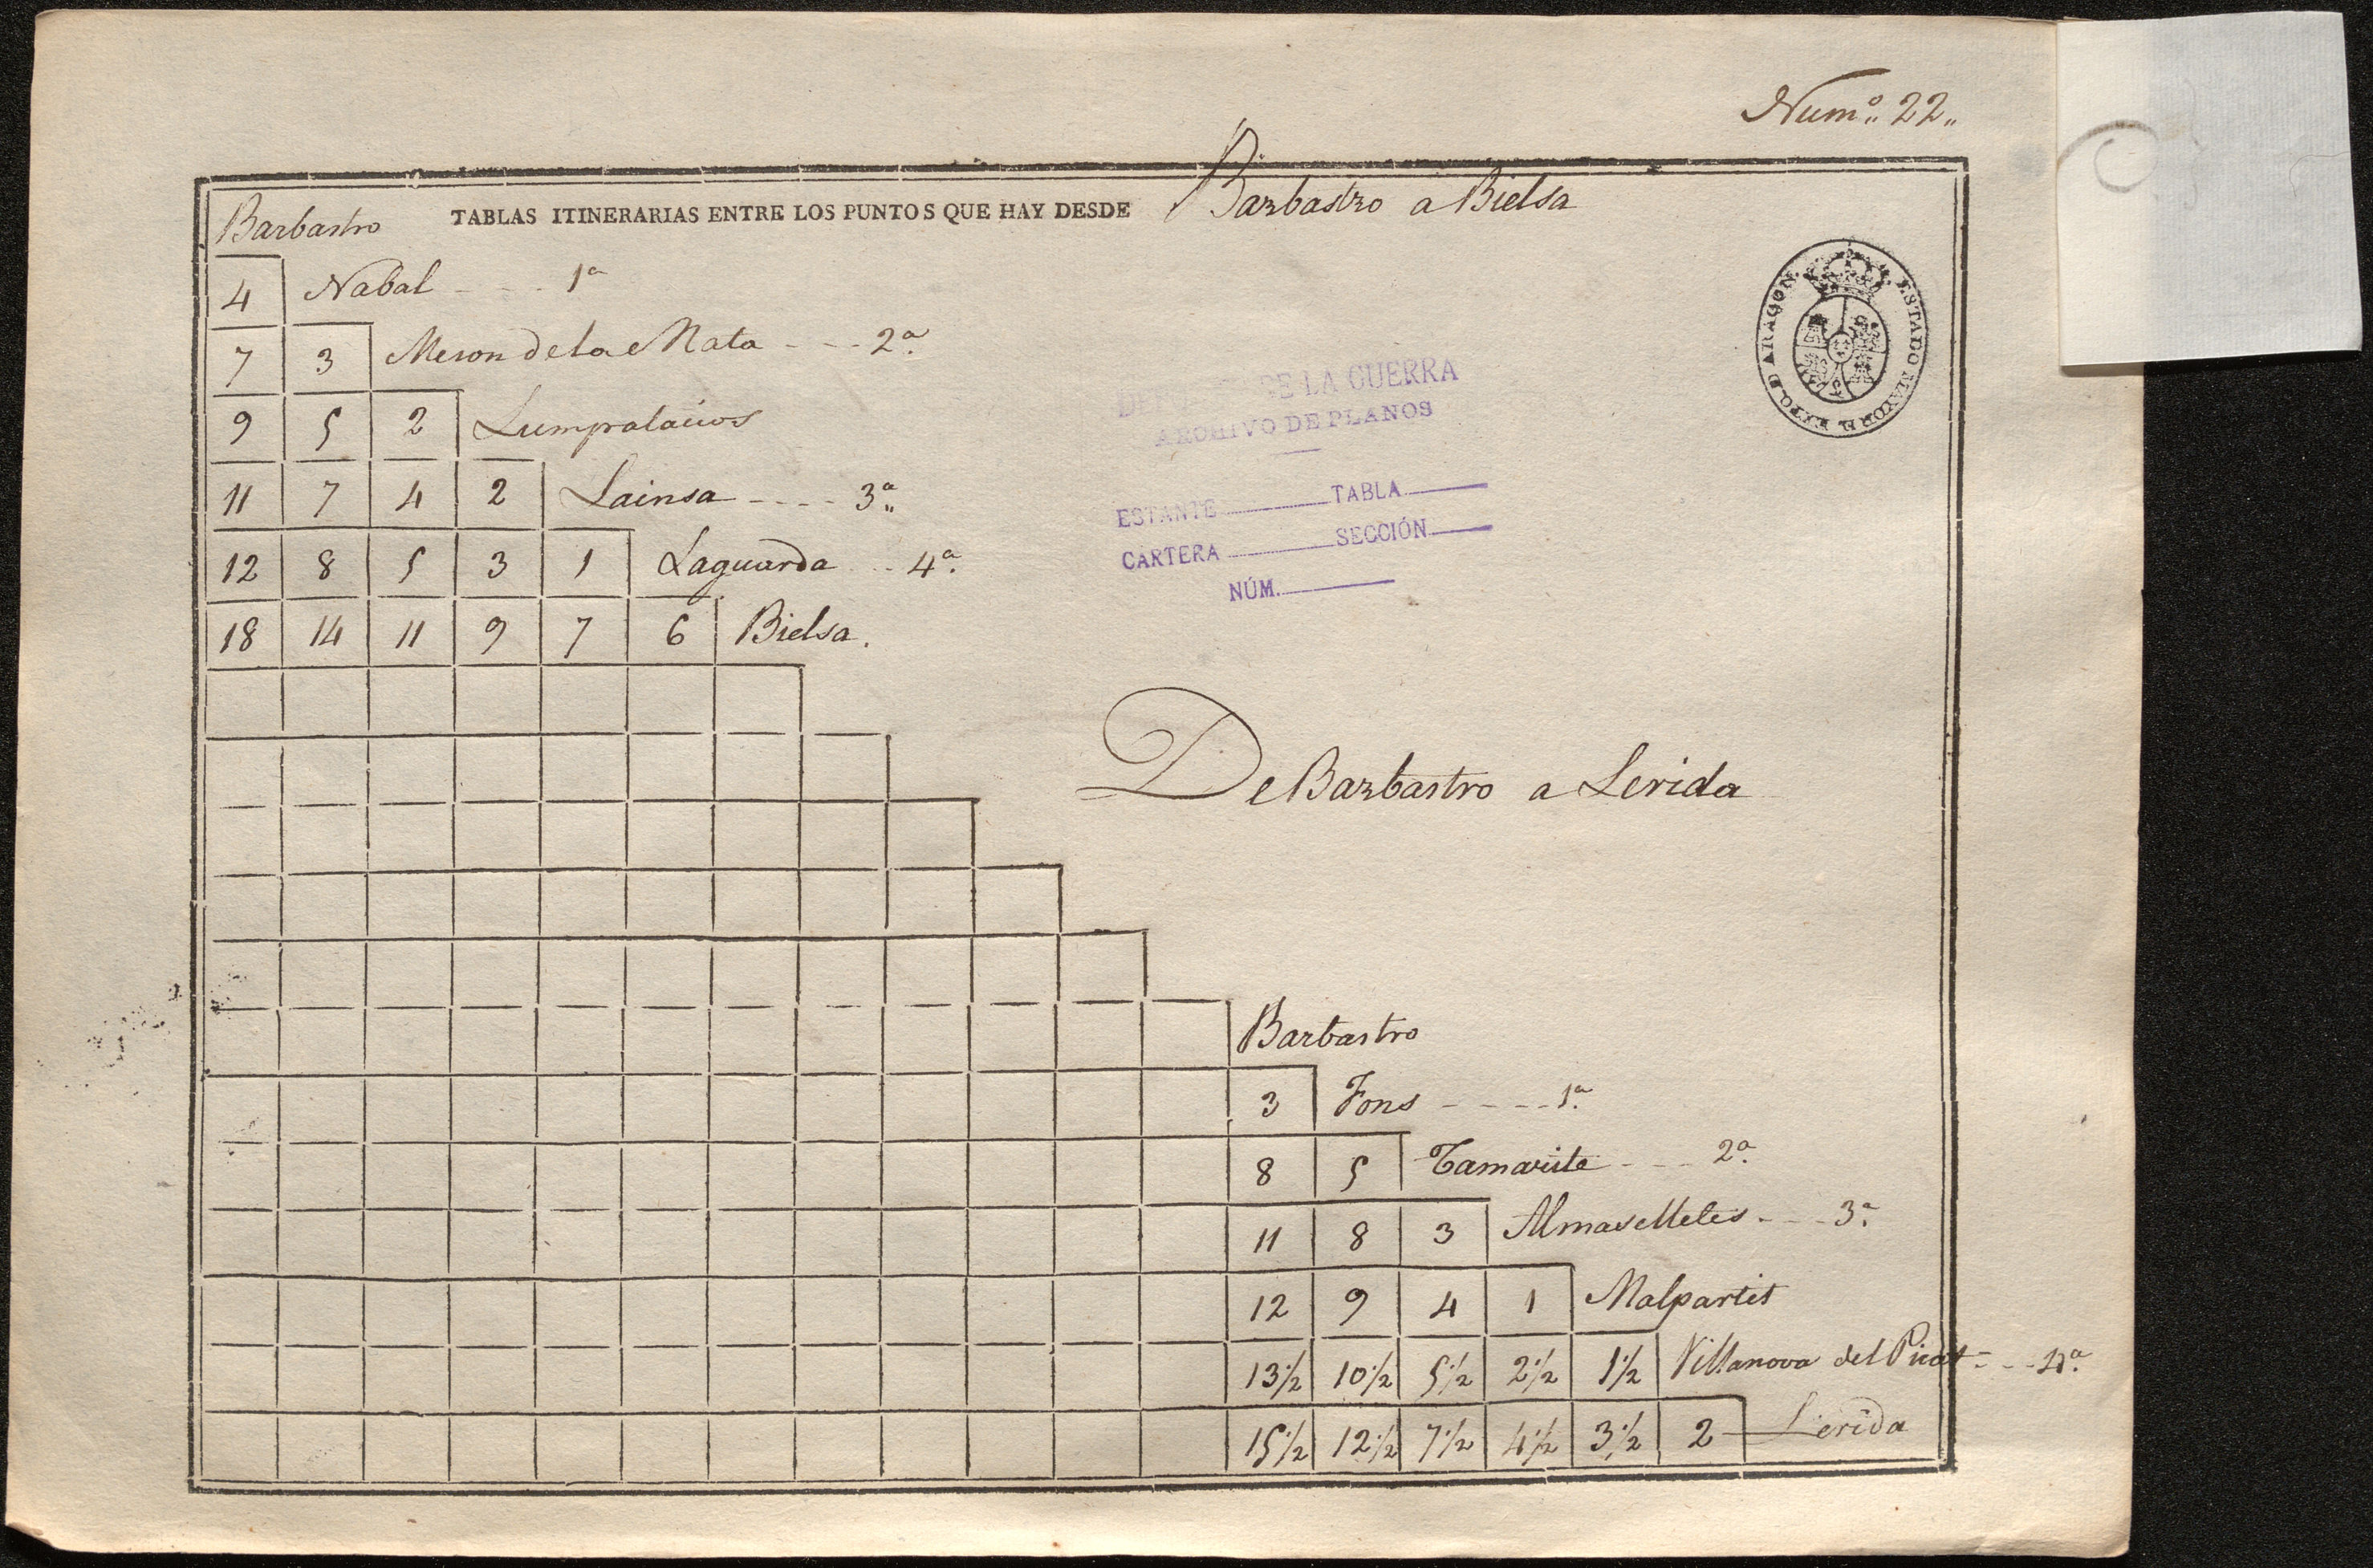 Num.º 22.
TABLAS ITINERARIAS ENTRE LOS PUNTOS QUE HAY DESDE Barbastro a Bielsa
Barbastro
4 Nabal 1ª
7 3 Meson de la Mata 2ª
9 5 2 Lumpalacios
11 7 4 2 Lainsa 3ª
12 8 5 3 1 Laguarda 4ª
18 14 11 9 7 6 Bielsa.
ESTADO MAYOR
ARAGON
DE LA GUERRA
ARCHIVO DE PLANOS
ESTANTE TABLA
CARTERA SECCIÓN
NÚM.
De Barbastro a Lerida
Barbastro
3 Fons 1ª
8 5 Tamarite 2ª
11 8 3 Almaselletes 3ª
12 9 4 1 Malpartit
13 1/2 10 1/2 5 1/2 2 1/2 1 1/2 Villanova del Picat 4ª
15 1/2 12 1/2 7 1/2 4 1/2 3 1/2 2 Lerida